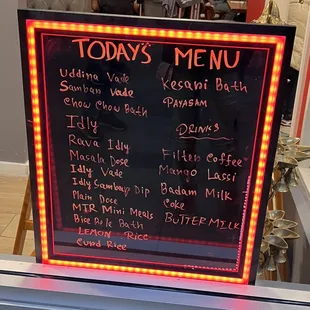 TODAY'S MENU
Uddina Vade
Sambar Vade
Chow Chow Bath
Idly
Rava Idly
Masala Dose
Idly Vade
Idly Sambar Dip
Plain Dose
MTR Mini Meals
Bice Bele Bath
LEMON Rice
Curd Rice
Kesari Bath
PAYASAM
DRINKS
Filter Coffee
Mango Lassi
Badam Milk
Coke
BUTTERMILK